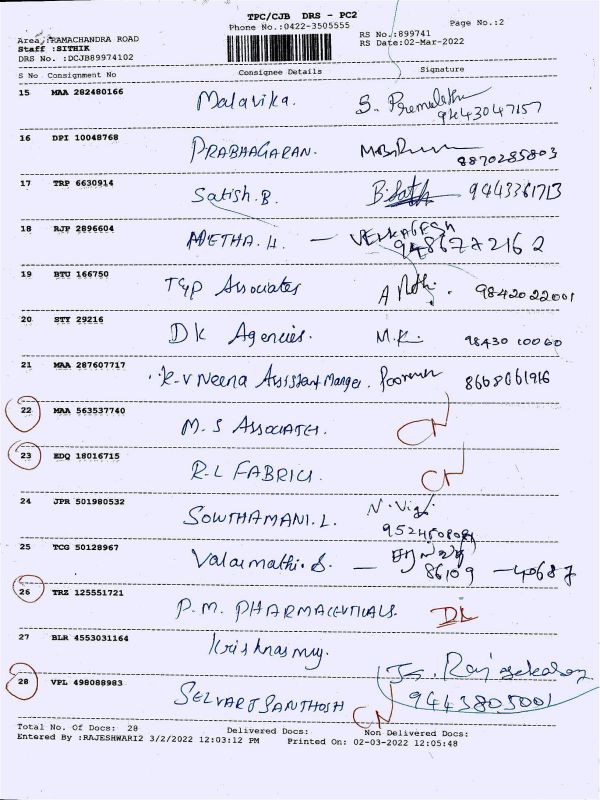 TPC/CJB DRS - PC2
Phone No.:0422-3505555
Page No.:2
Area :RAMACHANDRA ROAD
RS No.:899741
Staff :SITHIK
RS Date:02-Mar-2022
DRS No. :DCJB89974102
S No Consignment No Consignee Details Signature
15 MAA 282480166 Malavika. S. Premalatha
9443047157
16 DPI 10048768 PRABHAGARAN.
8870285803
17 TRP 6630914 Satish.B. B.Sath 9443361713
18 RJP 2896604 METHA.H. — VENKATESH
9486772162
19 BTU 166750 T&P Associates 9842022001
20 STY 29216 DK Agencies. M.K. 98430 10060
21 MAA 287607717 K.V Neena Assistant Manger. 8668661916
22 MAA 563537740 M.S ASSOCIATES. CN
23 EDQ 18016715 R.L FABRICS CN
24 JPR 501980532 SOWTHAMANI.L.
25 TCG 50128967 Valarmathi.S. —
86109 - 40687
26 TRZ 125551721 P.M. PHARMACEUTICALS. DL
27 BLR 4553031164 Krishnasmy. Rajasekaran
28 VPL 498088983 SELVARJ SANTHOSH CN 9443805001
Total No. Of Docs: 28 Delivered Docs: Non Delivered Docs:
Entered By :RAJESHWARI2 3/2/2022 12:03:12 PM Printed On: 02-03-2022 12:05:48